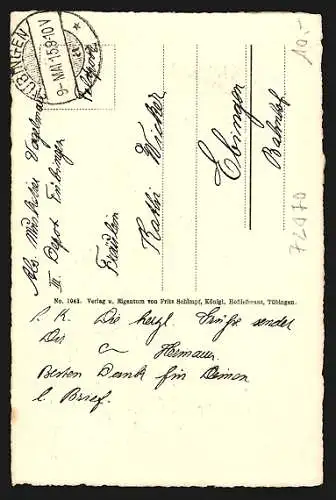 TÜBINGEN
9. MAI 15. 9-10 V
Feldpost
Abs. Musketier Vogelmann
III Depot Tübingen
Fräulein
Kathi Wicker
Ebingen
Bahnhof
10,-
72070
No. 1043. Verlag u. Eigentum von Fritz Schimpf, Königl. Hoflieferant, Tübingen.
L. K. Die herzl. Grüße sendet
Dir Hermann
Besten Dank für Deinen
l. Brief.